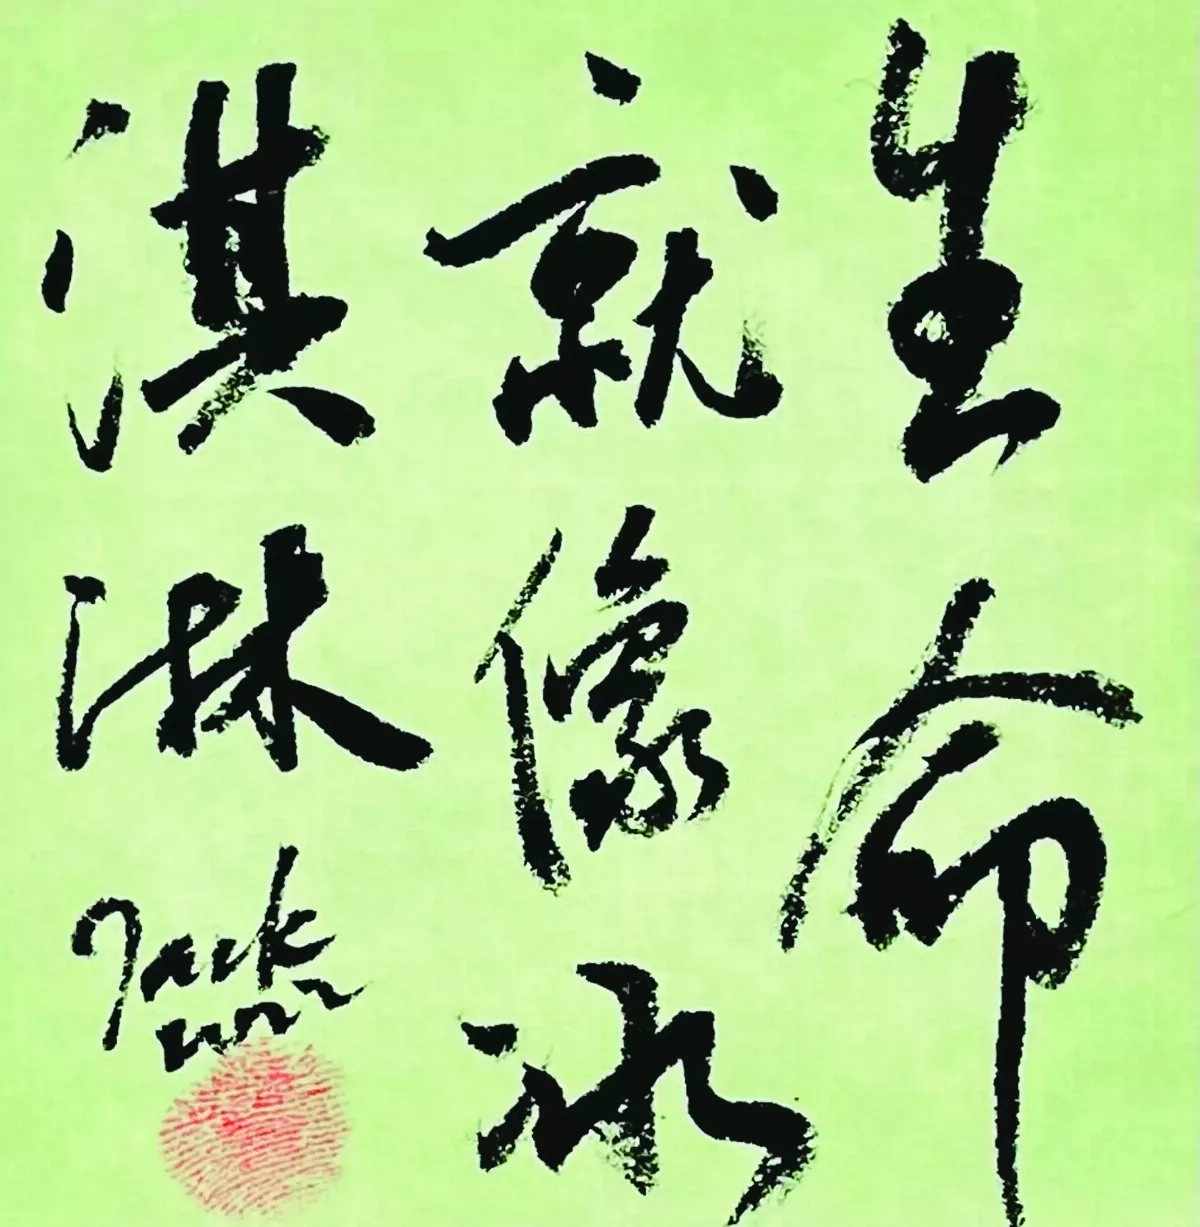 生命
就像冰
淇淋
Jack